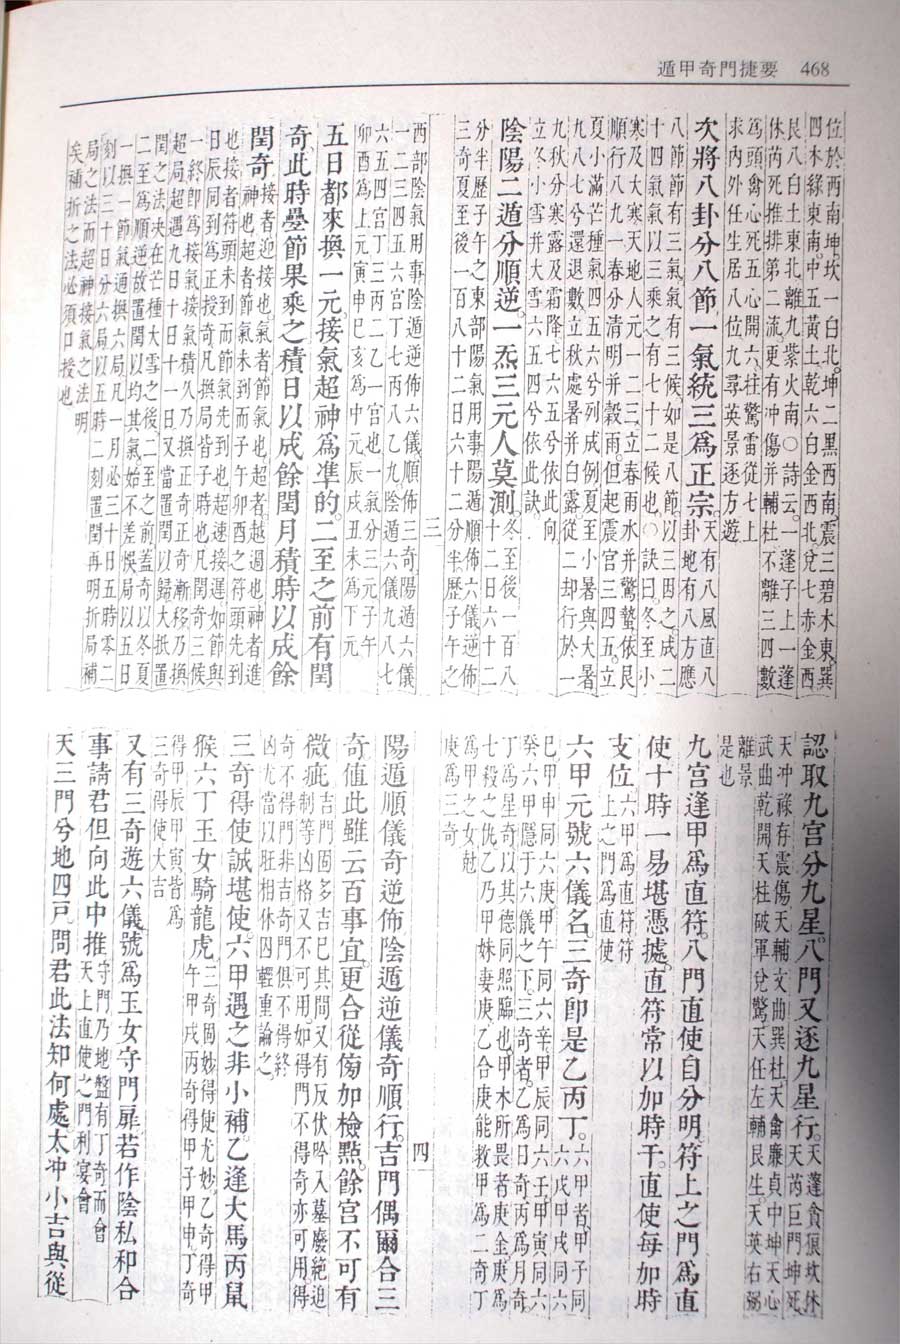 遁甲奇門捷要　468
位於西南坤坎一白北坤二黑西南震三碧木東巽
四木綠東南中五黃土乾六白金西北兌七赤金西
艮八白土東北離九紫火南○詩云一蓬子上一蓬
休芮死推排第二流更有冲傷并輔杜不離三四數
爲頭禽心死五心開六柱驚雷從七上
求內外任生居八位九尋英景逐方遊
次將八卦分八節一氣統三爲正宗天有八風直八
卦地有八方應
八節節有三氣氣有三候如是八節以三因之成二
十四氣氣以三乘之有七十二候也○訣曰冬至小
寒及大寒天地人元一二三立春雨水并驚蟄依艮
順行八九一春分清明并穀雨但起震宮三四五立
夏小滿芒種氣四五六兮列成例夏至小暑與大暑
九八七兮還退數立秋處暑并白露從二却行於一
九秋分寒露及霜降七六五兮依此向
立冬小雪并大雪六五四兮依此訣
陰陽二遁分順逆一炁三元人莫測冬至後一百八
十二日六十二
分半歷子午之東部陽氣用事陽遁順佈六儀逆佈
三奇夏至後一百八十二日六十二分半歷子午之
三
西部陰氣用事陰遁逆佈六儀順佈三奇陽遁六儀
一二三四五六宮丁七丙八乙九陰遁六儀九八七
六五四宮丁三丙二乙一宮也一氣分三元子午
卯酉爲上元寅申巳亥爲中元辰戌丑未爲下元
五日都來換一元接氣超神爲準的二至之前有閏
奇此時疊節果乘之積日以成餘閏月積時以成餘
閏奇接者迎接也氣者節氣也超者越過也神者進
神也超者節氣未到而子午卯酉之符頭先到
也接者符頭未到而節氣先到也超速接遲如節與
日辰同到爲正授奇凡換局皆子時也凡閏奇三候
一終卽爲接氣接氣積久乃換正奇正奇漸移乃換
超局超遇九日十日十一日又當置閏以歸大抵置
閏之法決在芒種大雪之後二至之前蓋奇以冬夏
二至爲順逆故置閏以均其氣始不差悞局以五日
一換一節氣通換六局凡一月必三十日五時零二
刻以三十日分六局以五時二刻置閏再明折局補
局之法而超神接氣之法明
矣補折之法必須口授也
認取九宮分九星八門又逐九星行天蓬貪狼坎休
天芮巨門坤死
天冲祿存震傷天輔文曲巽杜天禽廉貞中坤天心
武曲乾開天柱破軍兌驚天任左輔艮生天英右弼
離景
是也
九宮逢甲爲直符八門直使自分明符上之門爲直
使十時一易堪憑據直符常以加時干直使每加時
支位六甲爲直符符
上之門爲直使
六甲元號六儀名三奇卽是乙丙丁六甲者甲子同
六戊甲戌同六
巳甲申同六庚甲午同六辛甲辰同六壬甲寅同六
癸六甲隱于六儀之下三奇者乙爲日奇丙爲月奇
丁爲星奇以其德同照臨也甲木所畏者庚金庚金
七殺之仇乙乃甲妹妻庚乙合庚能救甲爲二奇丁
爲甲之女尅
庚爲三奇
四
陽遁順儀奇逆佈陰遁逆儀奇順行吉門偶爾合三
奇值此雖云百事宜更合從傍加檢點餘宮不可有
微疵吉門固多吉巳其間又有反伏吟入墓廢絶迫
制等凶格又不可用如得門不得奇亦可用得
奇不得門非吉奇門俱不得終
凶尤當以旺相休囚輕重論之
三奇得使誠堪使六甲遇之非小補乙逢犬馬丙鼠
猴六丁玉女騎龍虎三奇固妙得使尤妙乙奇得甲
午甲戌丙奇得甲子甲申丁奇
得甲辰甲寅皆爲
三奇得使大吉
又有三奇遊六儀號爲玉女守門扉若作陰私和合
事請君但向此中推守門乃地盤有丁奇而會
天上直使之門利宴會
天三門兮地四戸問君此法知何處太冲小吉與從